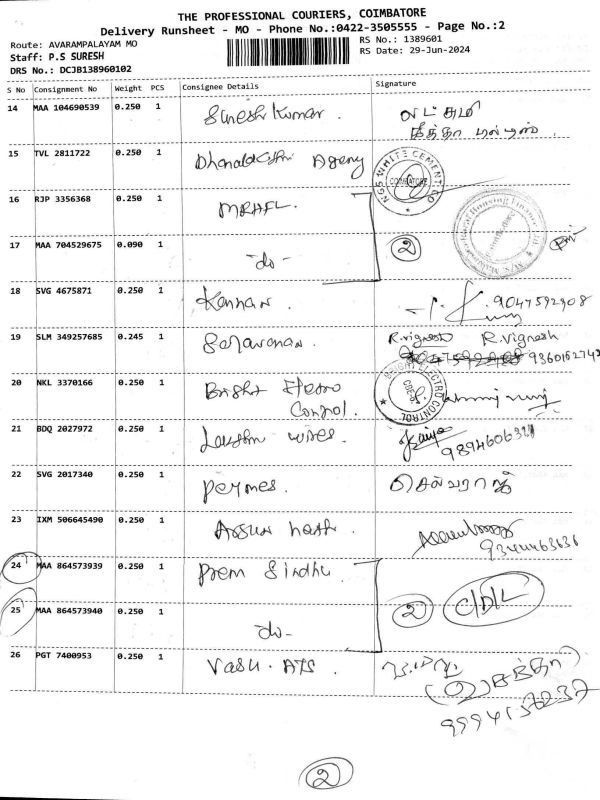 THE PROFESSIONAL COURIERS, COIMBATORE
Delivery Runsheet - MO - Phone No.:0422-3505555 - Page No.:2
Route: AVARAMPALAYAM MO
RS No.: 1389601
Staff: P.S SURESH
RS Date: 29-Jun-2024
DRS No.: DCJB138960102
S No Consignment No Weight PCS Consignee Details Signature
14 MAA 104690539 0.250 1 Suresh Kumar.
15 TVL 2811722 0.250 1 Dhanalakshmi Agency
NGS WHITE CEMENT CO COIMBATORE
16 RJP 3356368 0.250 1 MRHFL.
17 MAA 704529675 0.090 1 -do- 2
18 SVG 4675871 0.250 1 Kannan. 9047592908
19 SLM 349257685 0.245 1 Saravanan. R.vignesh R.vignesh
20 NKL 3370166 0.250 1 Bright Electro
Control.
BRIGHT ELECTRO CONTROL
21 BDQ 2027972 0.250 1 Lakshmi wires.
22 SVG 2017340 0.250 1 செல்வராஜ்
23 IXM 506645490 0.250 1 9344463636
24 MAA 864573939 0.250 1 Prem Sindhu.
25 MAA 864573940 0.250 1 do- 2 C/D/L
26 PGT 7400953 0.250 1 Vasu. ATS
2